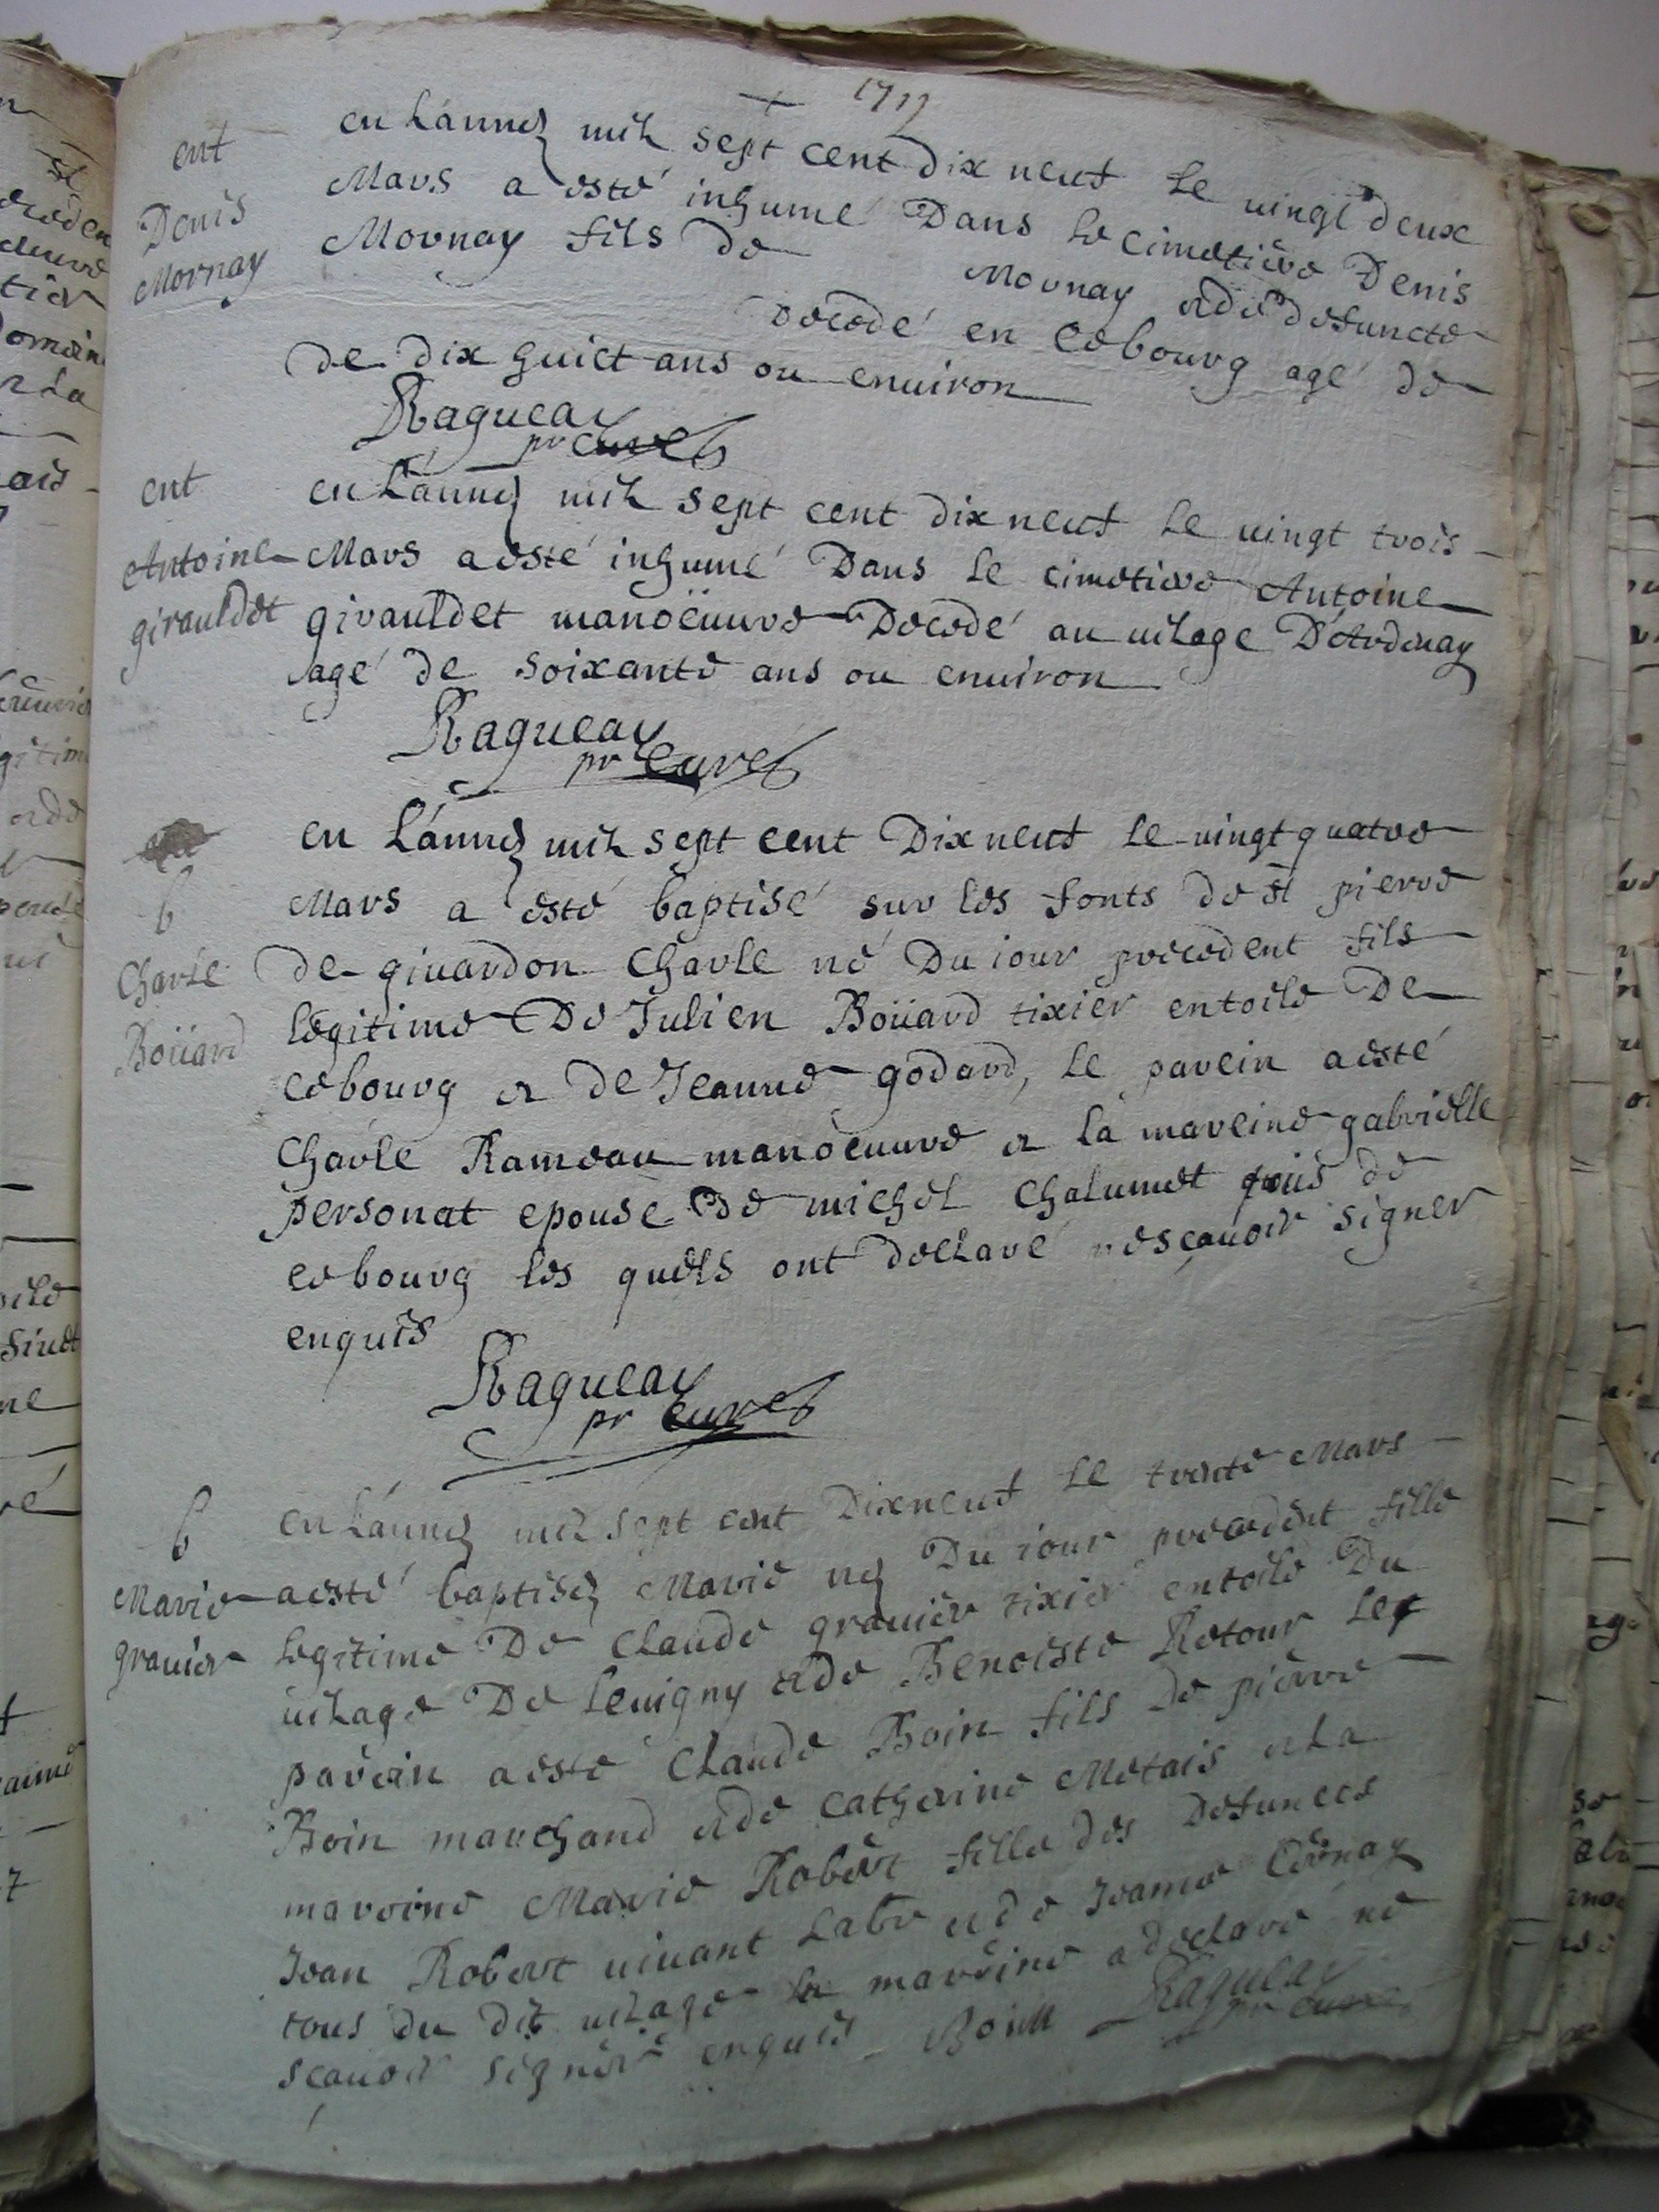 1719
ent
Denis
Mornay
en Lánneé mil sept cent dix neuf Le uingt deux
Mars a esté inhumé Dans Le cimetiere Denis
Mornay fils de Mornay et de defuncte
decedé en ce bourg agé de
de dix huict ans ou enuiron
Ragueau
pr curé
ent
Antoine
girauldet
en Lánneé mil sept cent dix neuf Le uingt trois
Mars a esté inhumé Dans Le cimetiere Antoine
girauldet manoëuure Decedé au uilage D'Ardenay
agé de soixante ans ou enuiron
Ragueau
pr curé
b
Charle
Boüard
en Lánneé mil sept cent Dix neuf Le uingt quatre
Mars a esté baptisé sur les fonts de st pierre
de giuardon Charle né Du iour precedent fils
legitime De Julien Boüard tixier en toile De
ce bourg et de Jeanne godard, Le parein a esté
Charle Rameau manoeuure et la mareine gabrielle
personat epouse de michel Chalumet tous de
ce bourg les quels ont declaré ne sçauoir signer
enquis
Ragueau
pr curé
b
Marie
grauier
en Lánneé mil sept cent Dixneuf Le trente Mars
a esté baptiseé Marie neé Du iour precedent fille
legitime De Claude grauier tixier en toile Du
uilage De Leuigny et de Benoiste Retour Le
parein a esté Claude Boin fils de pierre
Boin marchand et de Catherine Metais et La
mareine Marie Robert fille des defuncts
Jean Robert uiuant Labr et de Jeanne Cornay
tous du dit uilage la mareine a declaré ne
scauoir signer enquis Boin Ragueau
pr curé